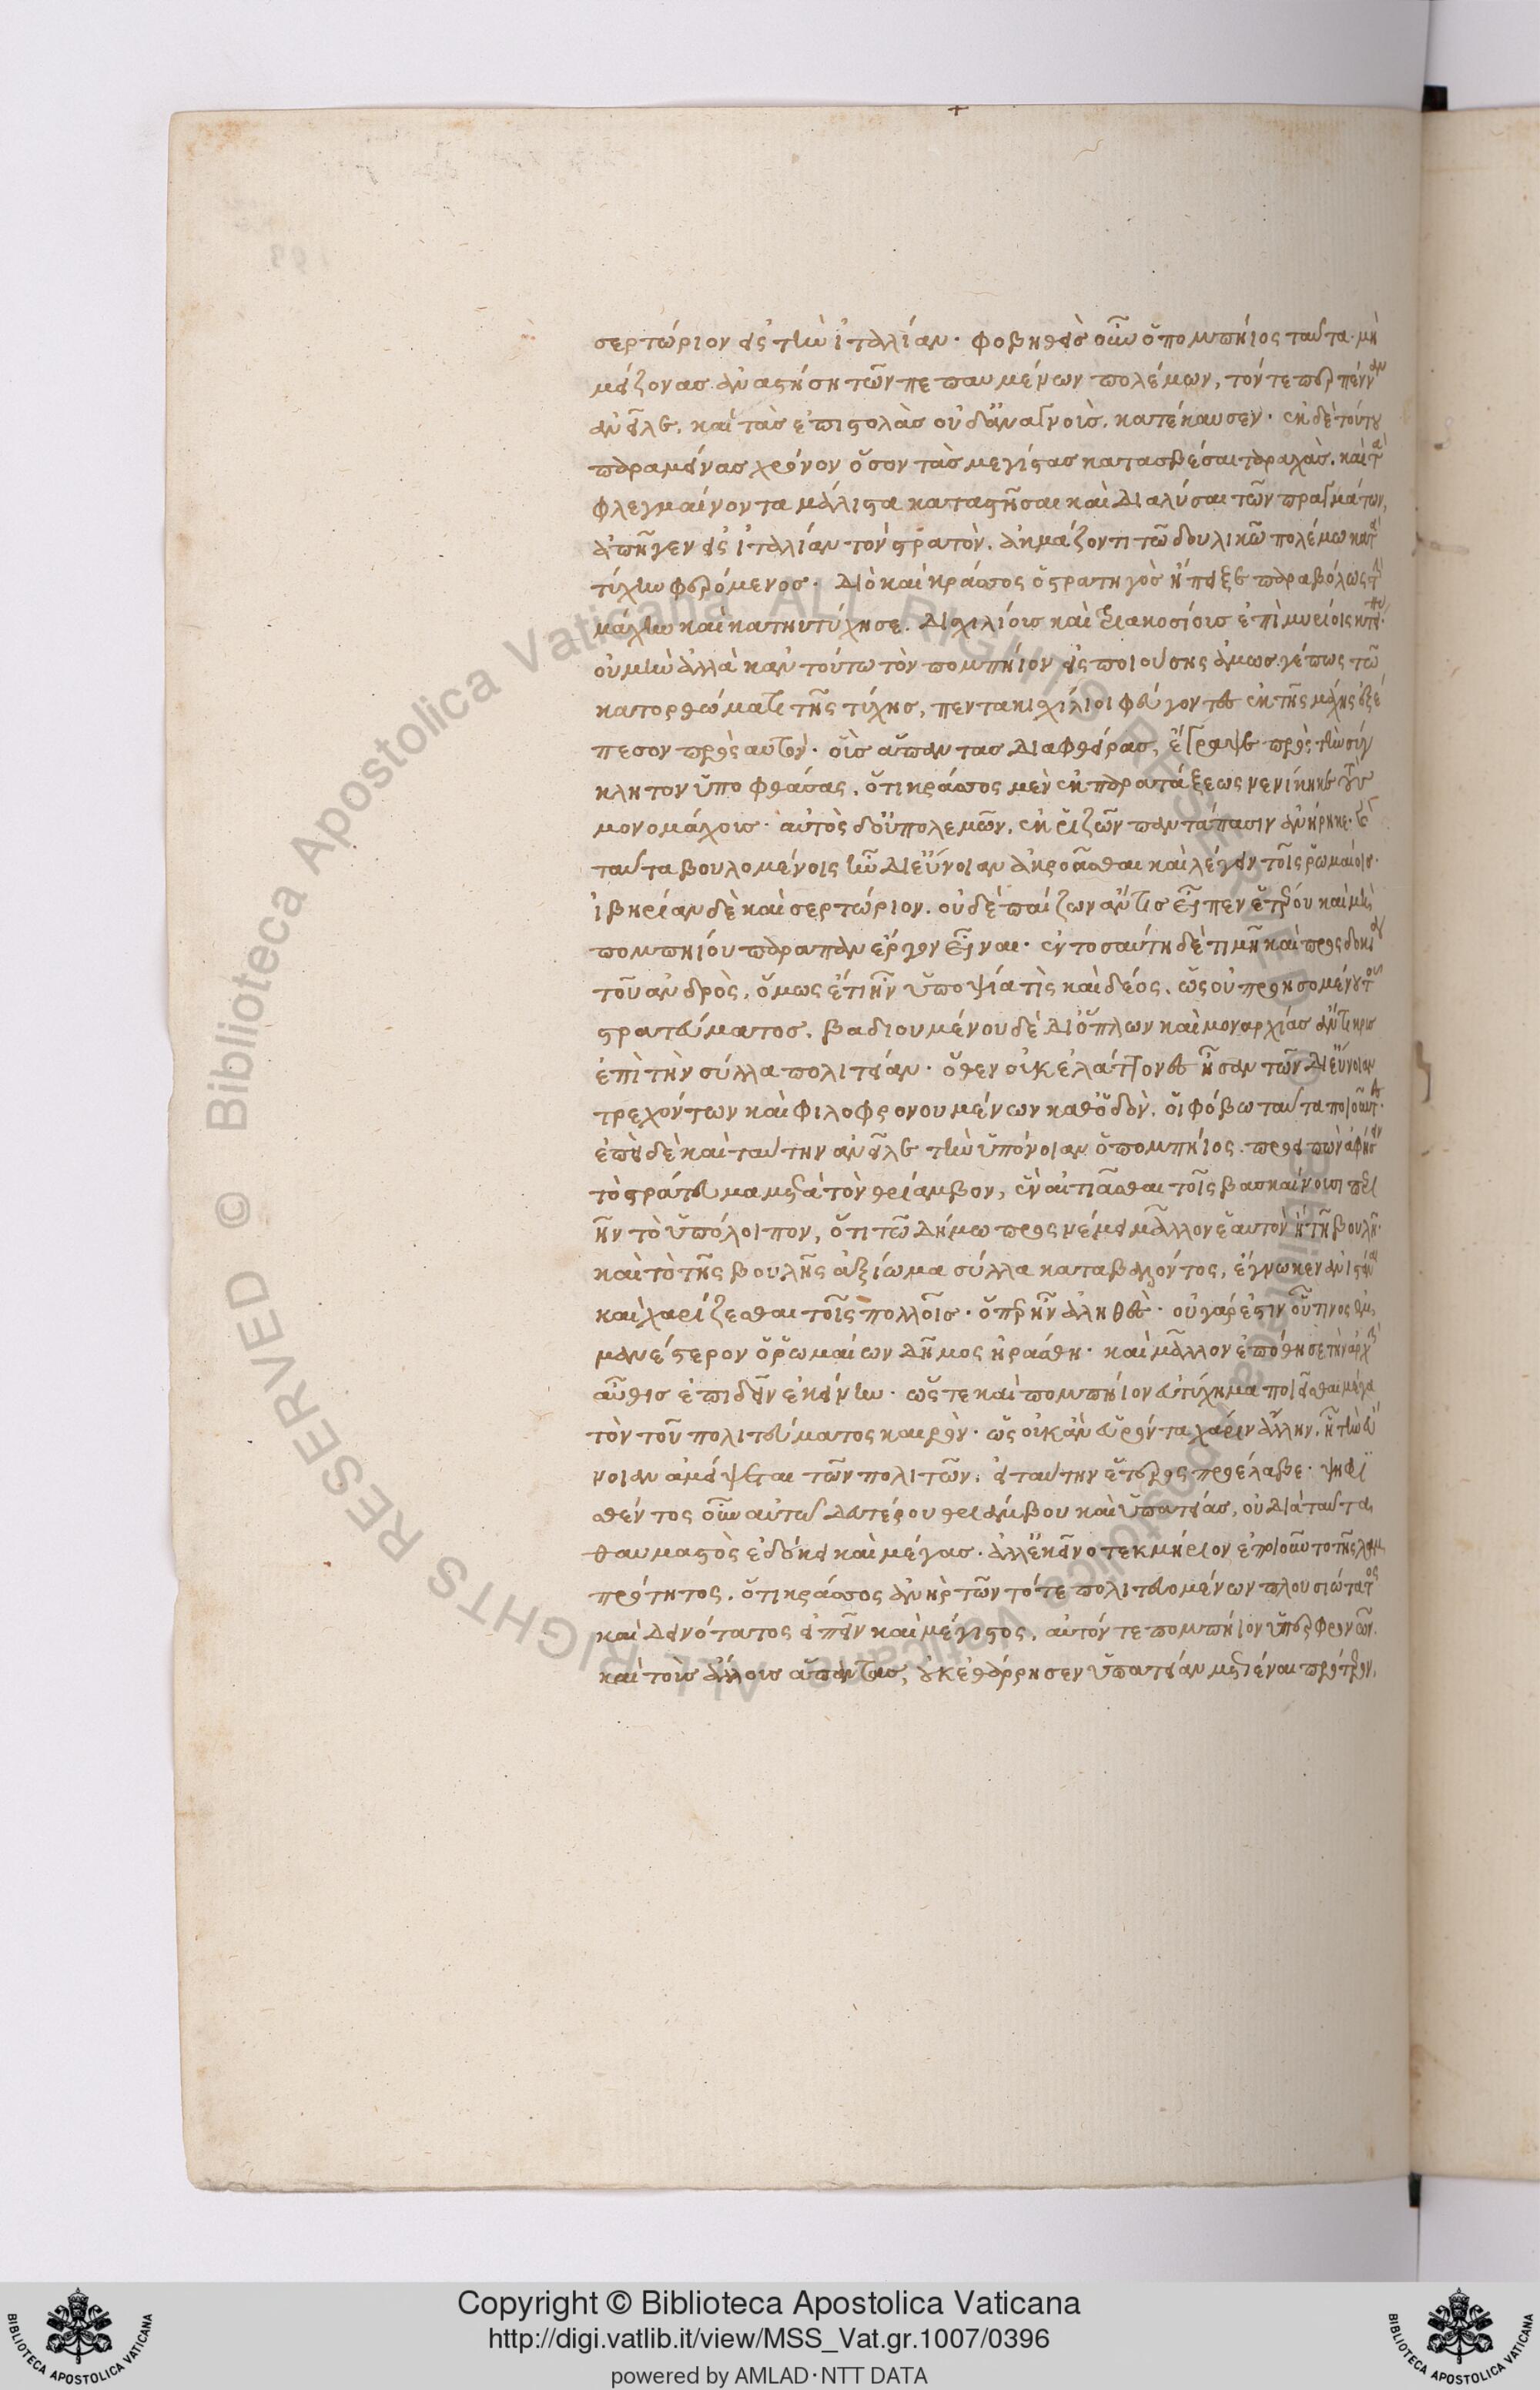 σερτώριον εἰς τὴν ἰταλίαν· φοβηθεὶς οὖν ὁ πομπήιος ταῦτα· μὴ
μείζονας ἀναστήση τῶν πεπαυμένων πολέμων, τόν τε περπένναν
ἀνεῖλε, καὶ τὰς ἐπιστολὰς οὐδ' ἀναγνοὺς, κατέκαυσεν· ἐκ δὲ τούτου
παραμείνας χρόνον ὅσον τὰς μεγίστας κατασβέσαι ταραχὰς, καὶ τὰ
φλεγμαίνοντα μάλιστα καταστῆσαι καὶ διαλύσαι τῶν πραγμάτων,
ἀπῆγεν εἰς ἰταλίαν τὸν στρατὸν, ἀκμάζοντι τῶ δουλικῶ πολέμω κατὰ
τύχην φερόμενος· διὸ καὶ κράσσος ὁ στρατηγὸς ἤπειξε παραβόλως τὴν
μάχην καὶ κατηυτύχησε, δισχιλίους καὶ τριακοσίους ἐπὶ μυρίοις κτείνας·
οὐ μὴν ἀλλὰ κἀν τούτω τὸν πομπήιον εἰσποιούσης ἁμωσγέπως τῶ
κατορθώματι τῆς τύχης, πεντακισχίλιοι φεύγοντες ἐκ τῆς μάχης ἐξέ
πεσον πρὸς αὐτὸν· οὓς ἅπαντας διαφθείρας, ἔγραψε πρὸς τὴν σύγ
κλητον ὑποφθάσας, ὅτι κράσσος μὲν ἐκ παρατάξεως νενίκηκε τοὺς
μονομάχους· αὐτὸς δὲ τὸν πόλεμον, ἐκ ῥιζῶν παντάπασιν ἀνήρηκε· καὶ
ταῦτα βουλομένοις ἦν δι' εὔνοιαν ἀκροᾶσθαι καὶ λέγειν τοῖς ῥωμαίοις·
ἰβηρίαν δὲ καὶ σερτώριον, οὐδὲ παίζων ἄν τις εἶπεν ἑτέρου καὶ μὴ
πομπηίου παράπαν ἔργον εἶναι· ἐν τοσαύτη δὲ τιμῆ καὶ προσδοκία
τοῦ ἀνδρὸς, ὅμως ἔτι ἦν ὑποψία τὶς καὶ δέος, ὡς οὐ προησομένου τοῦ
στρατεύματος, βαδιουμένου δὲ δι' ὅπλων καὶ μοναρχίας ἄντικρυς
ἐπὶ τὴν σύλλα πολιτείαν· ὅθεν οὐκ ἐλάττονες ἦσαν τῶν δι' εὔνοιαν
τρεχόντων καὶ φιλοφρονουμένων καθ' ὁδὸν, οἱ φόβω ταῦτα ποιοῦντες·
ἐπεὶ δὲ καὶ ταύτην ἀνεῖλε τὴν ὑπόνοιαν ὁ πομπήιος· προειπὼν ἀφήσειν
τὸ στράτευμα μετὰ τὸν θρίαμβον, ἓν αἰτιᾶσθαι τοῖς βασκαίνουσι περι
ῆν τὸ ὑπόλοιπον, ὅτι τῶ δήμω προσνέμει μᾶλλον ἑαυτὸν ἢ τῆ βουλῆ·
καὶ τὸ τῆς βουλῆς ἀξίωμα σύλλα καταβαλόντος, ἔγνωκεν ἀνιστάναι
καὶ χαρίζεσθαι τοῖς πολλοῖς· ὅπερ ἦν ἀληθὲς· οὐ γάρ ἐστιν οὗτινος ἐμ
μανέστερον ὁ ῥωμαίων δῆμος ἠράσθη· καὶ μᾶλλον ἐπόθησε τὴν ἀρχὴν
αὖθις ἐπιδεῖν ἐκείνην· ὥστε καὶ πομπήιον εὐτύχημα ποιεῖσθαι μέγα
τὸν τοῦ πολιτεύματος καιρὸν· ὡς οὐκ ἂν εὑρόντα χάριν ἄλλην, ἧ τὴν εὔ
νοιαν ἀμείψεται τῶν πολιτῶν, εἰ ταύτην ἕτερος προέλαβε· ψηφι
σθέντος οὖν αὐτῶ δευτέρου θριάμβου καὶ ὑπατείας, οὐ διὰ ταῦτα
θαυμαστὸς ἐδόκει καὶ μέγας· ἀλλ' ἐκεῖνο τεκμήριον ἐποιοῦντο τῆς λαμ
πρότητος, ὅτι κράσσος ἀνὴρ τῶν τότε πολιτευομένων πλουσιώτατος
καὶ δεινότατος εἰπεῖν καὶ μέγιστος, αὐτόν τε πομπήιον ὑπερφρονῶν
καὶ τοὺς ἄλλους ἅπαντας, οὐκ ἐθάρρησεν ὑπατείαν μετιέναι πρότερον,